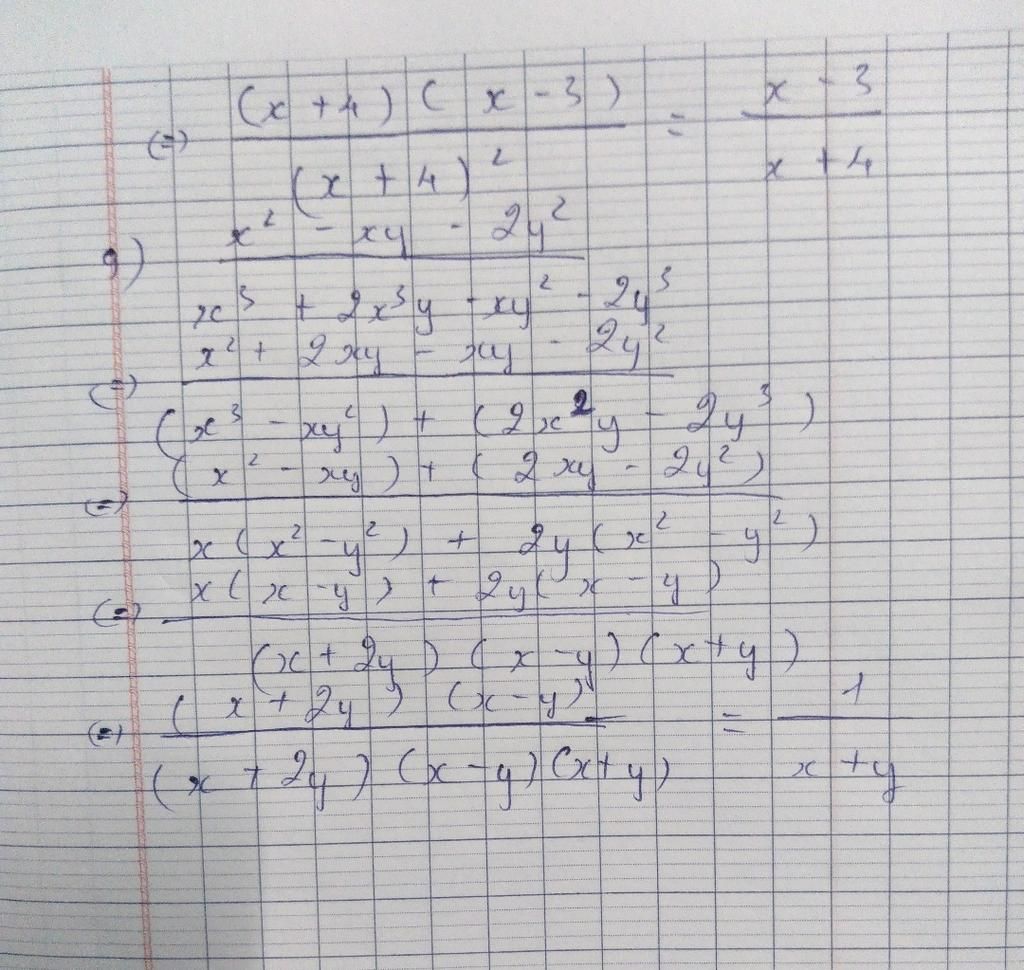 (=) (x + 4) ( x - 3 ) / (x + 4)² = x - 3 / x + 4
g) x² - xy - 2y² / x³ + 2x³y - xy² - 2y³
(=) x² + 2xy - xy - 2y² / (x³ - xy²) + (2x²y - 2y³)
(=) (x² - xy) + (2xy - 2y²) / x(x² - y²) + 2y(x² - y²)
(=) x(x - y) + 2y(x - y) / (x + 2y) (x - y) (x + y)
(=) (x + 2y) (x - y) / (x + 2y) (x - y) (x + y) = 1 / x + y